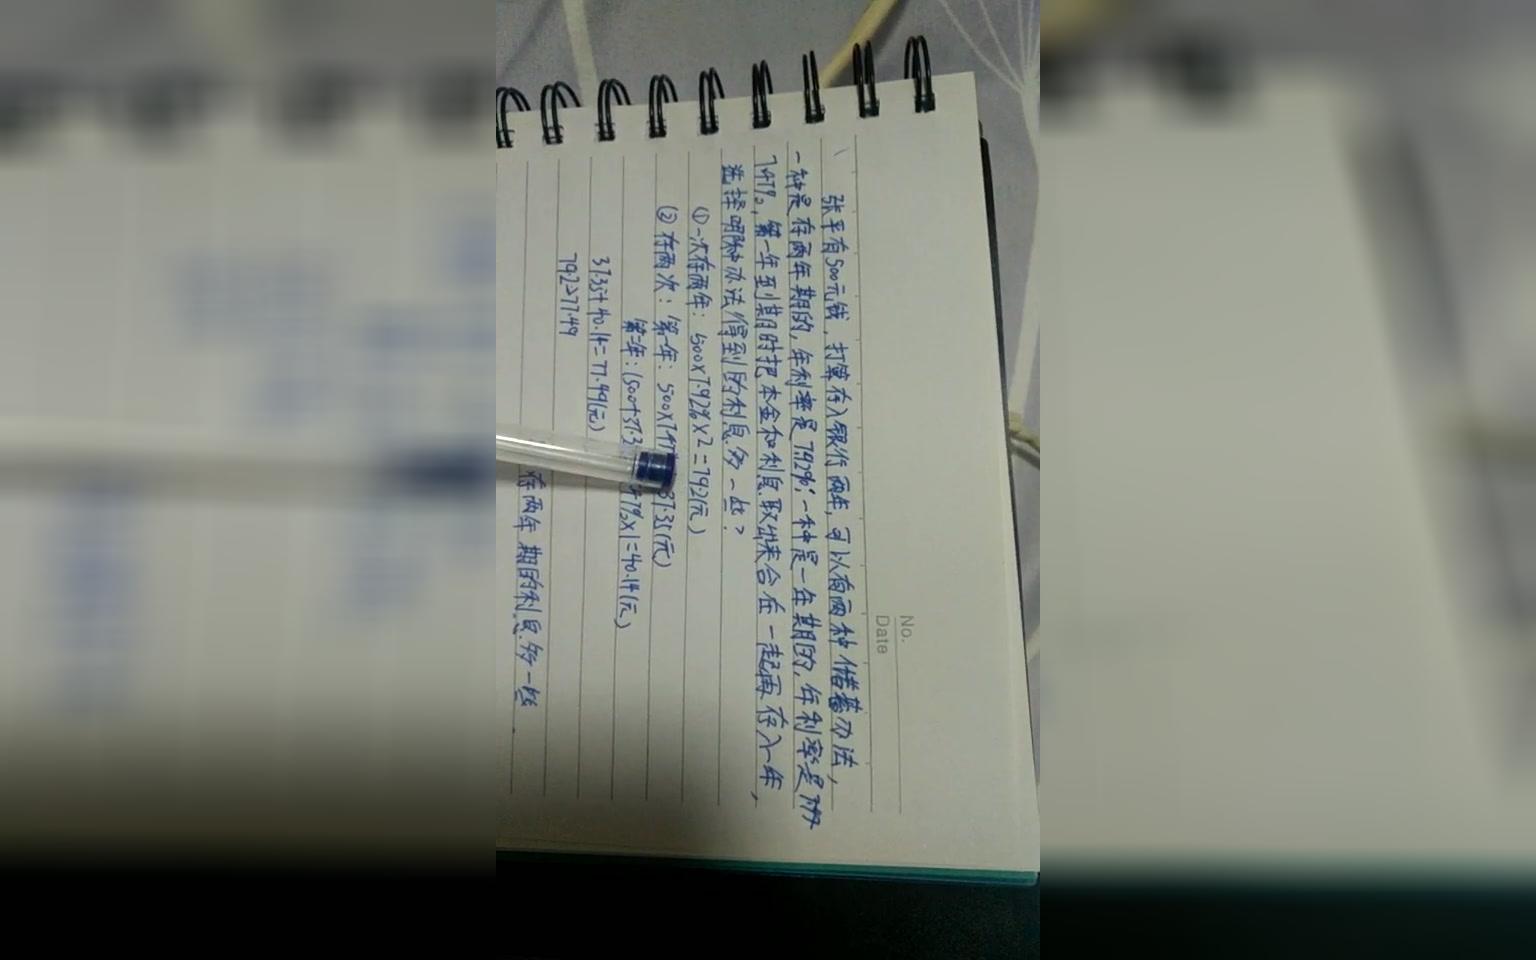 No.
Date
张平有500元钱，打算存入银行两年，可以有两种储蓄办法，
一种是存两年期的，年利率是7.92%；一种是一年期的，年利率是
7.47%，第一年到期时把本金和利息取出来合在一起再存入一年，
选择哪种办法得到的利息多一些？
①一次存两年：500×7.92%×2=79.2(元)
②存两次：第一年：500×7.47 37.35(元)
第二年：(500+37.3 47%×1=40.14(元)
37.35+40.14=77.49(元)
79.2>77.49
存两年期的利息多一些.